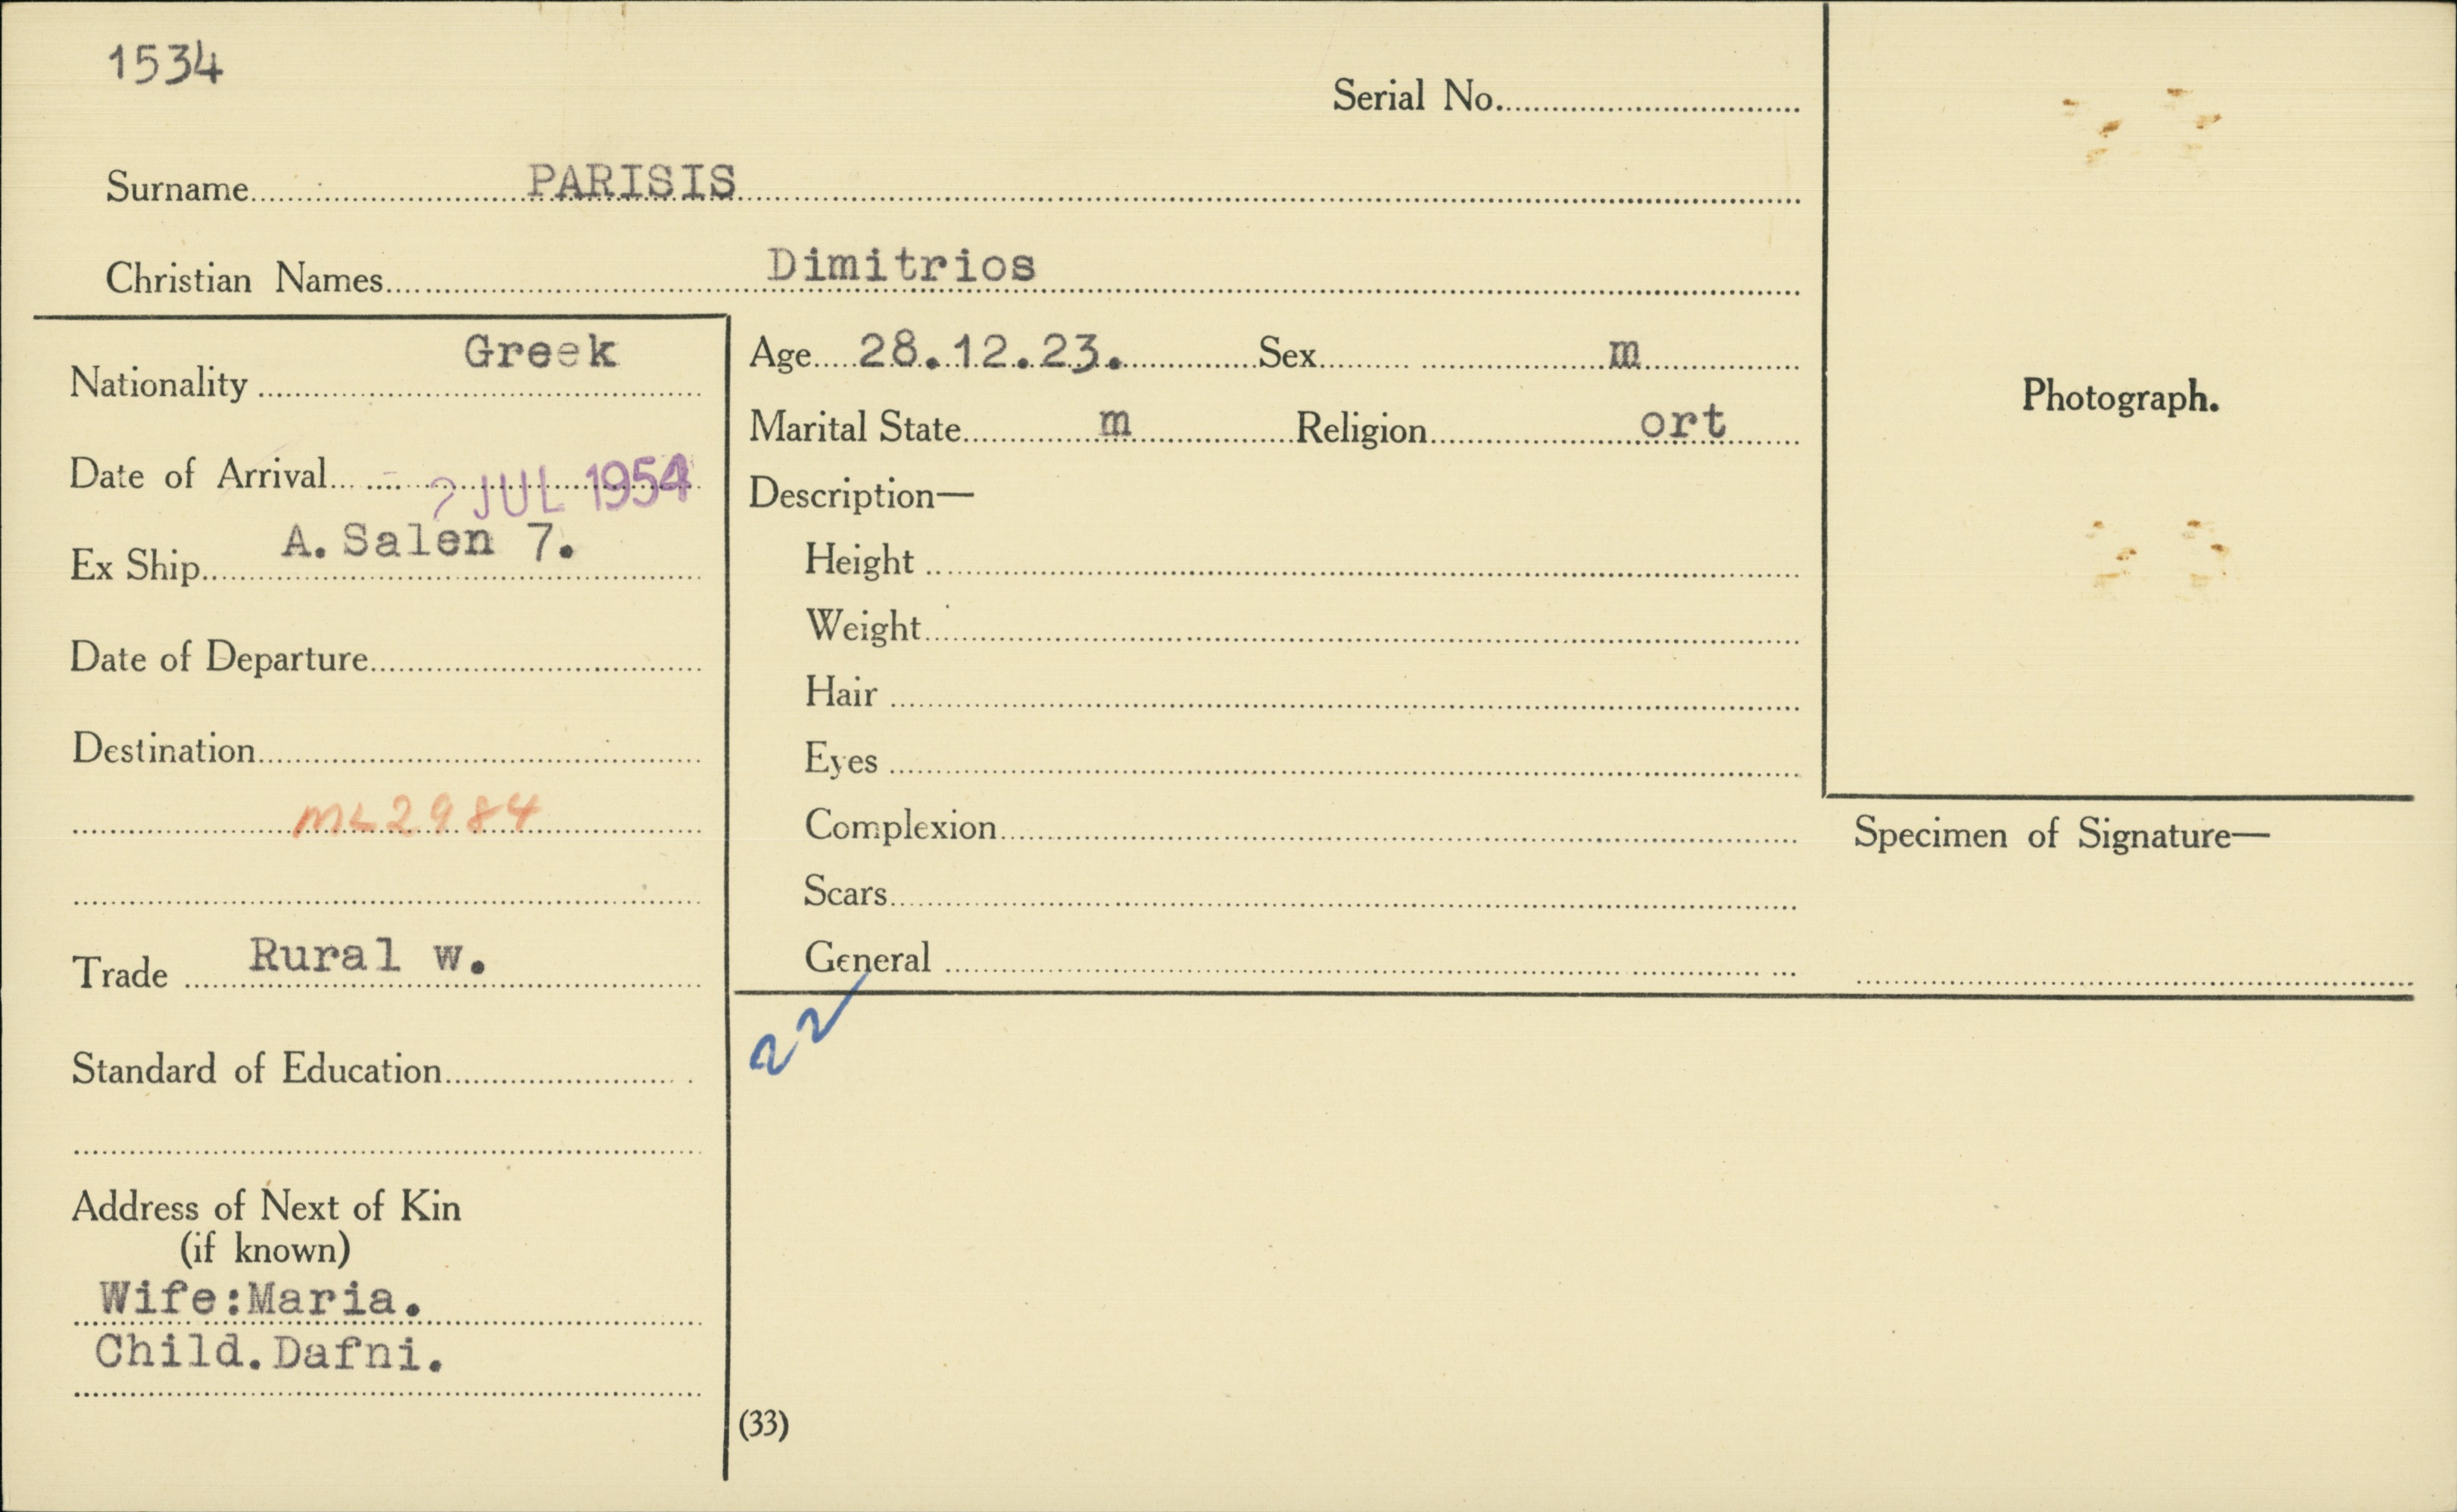 1534
Serial No.
Surname PARISIS
Christian Names Dimitrios
Nationality Greek
Date of Arrival - 2 JUL 1954
Ex Ship A. Salen 7.
Date of Departure
Destination
ML 2984
Trade Rural w.
Standard of Education
Address of Next of Kin
(if known)
Wife:Maria.
Child.Dafni.
Age 28.12.23. Sex m
Marital State m Religion ort
Description—
Height
Weight
Hair
Eyes
Complexion
Scars
General
22
(33)
Photograph.
Specimen of Signature—